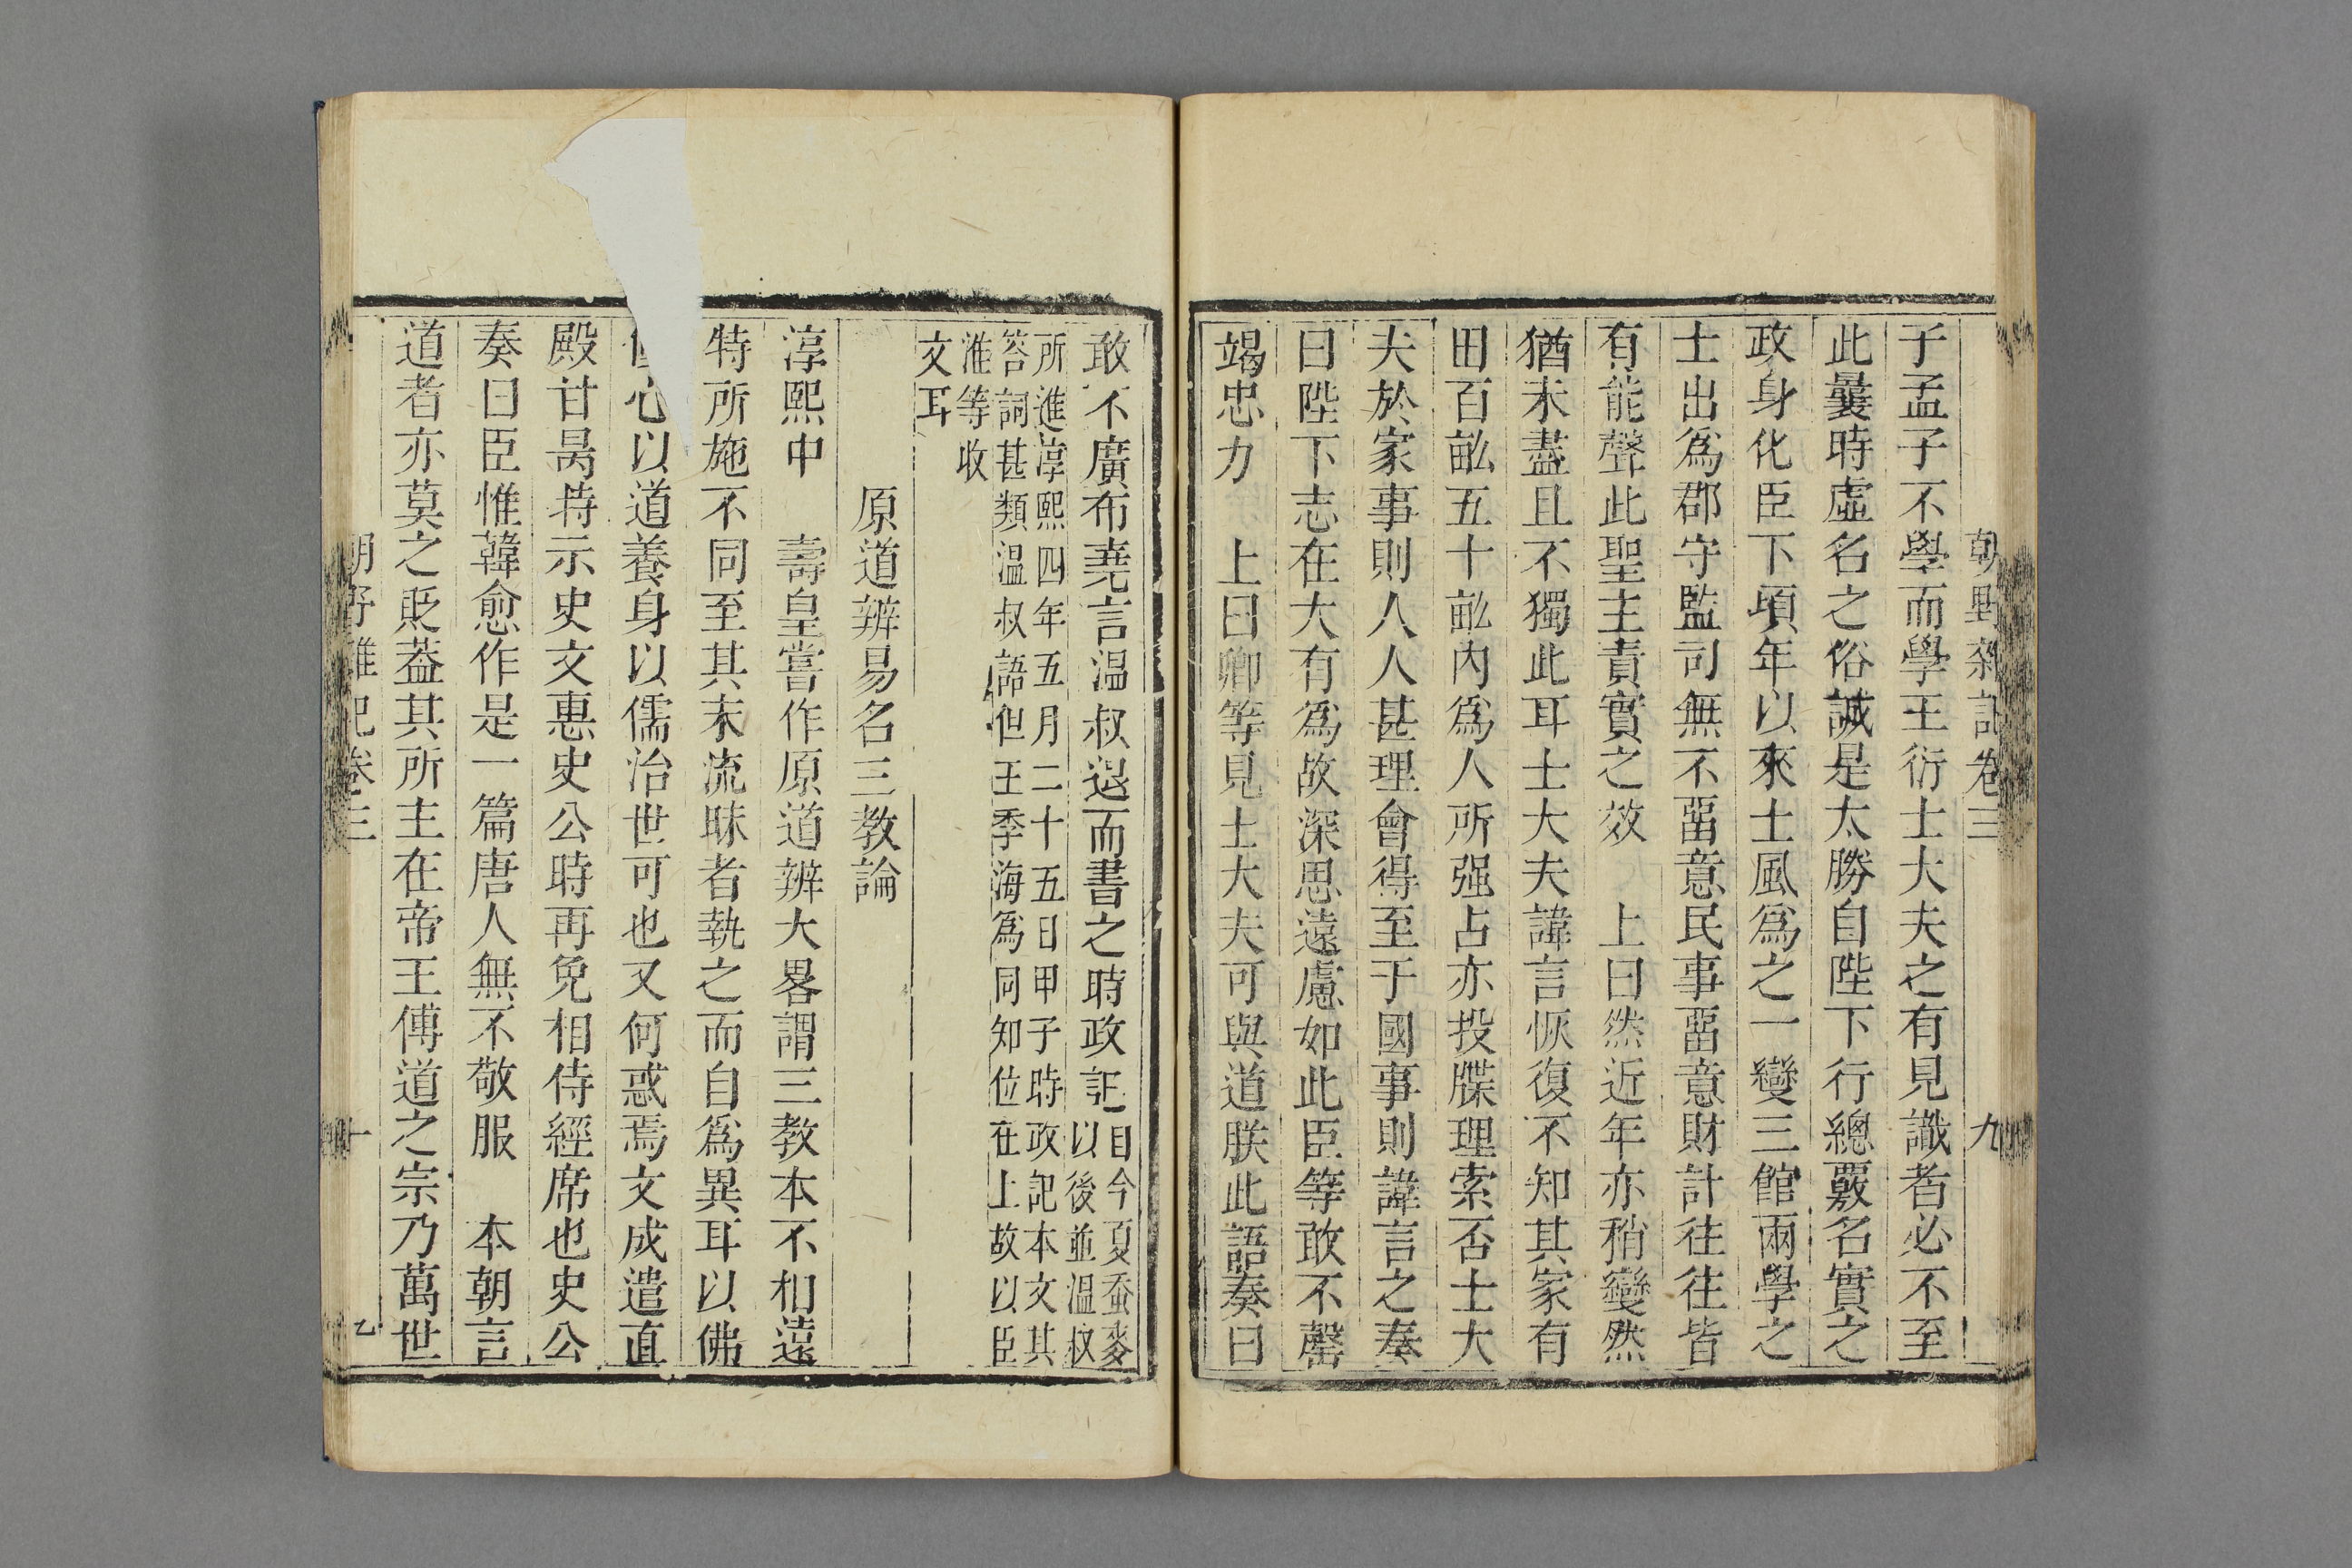 朝野雜記卷三 九
子孟子不學而學王衍士大夫之有見識者必不至
此曩時虛名之俗誠是太勝自陛下行總覈名實之
政身化臣下頃年以來士風爲之一變三館兩學之
士出爲郡守監司無不畱意民事畱意財計往往皆
有能聲此聖主責實之效 上曰然近年亦稍變然
猶未盡且不獨此耳士大夫諱言恢復不知其家有
田百畝五十畝內爲人所强占亦投牒理索否士大
夫於家事則人人甚理會得至于國事則諱言之奏
曰陛下志在大有爲故深思遠慮如此臣等敢不罄
竭忠力 上曰卿等見士大夫可與道朕此語奏曰
敢不廣布堯言温叔退而書之時政記自今夏蚕麥
以後並温叔
所進淳熙四年五月二十五日甲子時政記本文其
答詞甚類温叔語但王季海爲同知位在上故以臣
淮等收
文耳
原道辨易名三教論
淳熙中 壽皇嘗作原道辨大畧謂三教本不相遠
特所施不同至其末流昧者執之而自爲異耳以佛
心以道養身以儒治世可也又何惑焉文成遣直
殿甘昺持示史文惠史公時再免相侍經席也史公
奏曰臣惟韓愈作是一篇唐人無不敬服 本朝言
道者亦莫之貶葢其所主在帝王傳道之宗乃萬世
朝野雜記卷三 十 乙